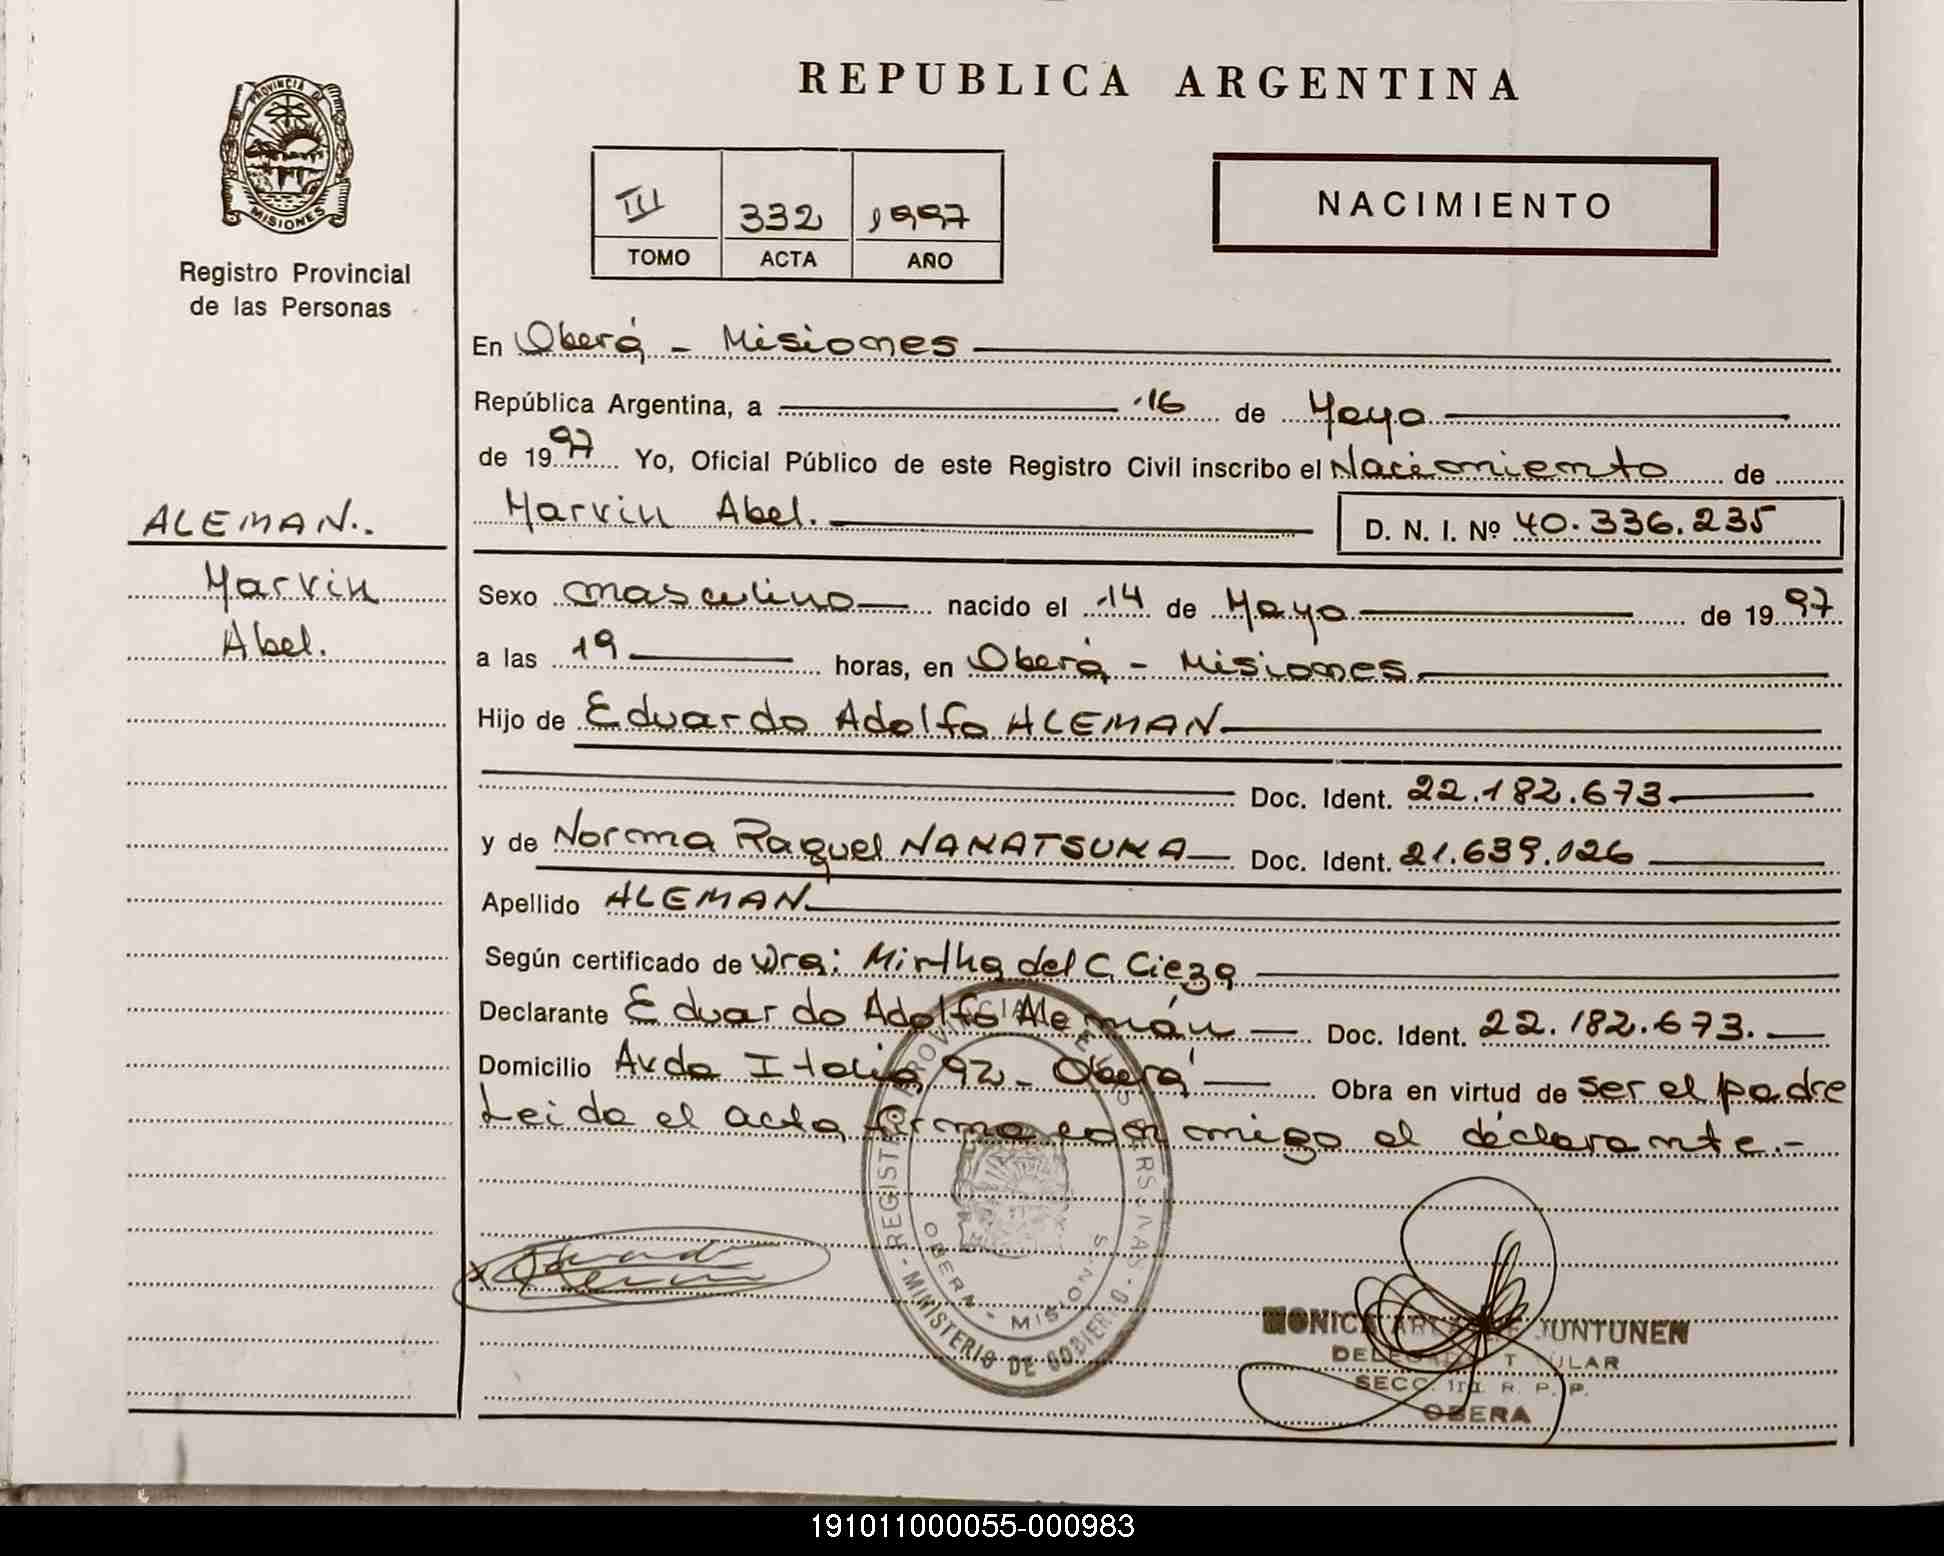 REPUBLICA ARGENTINA
PROVINCIA DE
MISIONES
Registro Provincial
de las Personas
III 332 1997
TOMO ACTA AÑO
NACIMIENTO
En Oberá - Misiones
República Argentina, a 16 de Mayo
de 1997 Yo, Oficial Público de este Registro Civil inscribo el Nacimiento de
Marvin Abel. D. N. I. Nº 40.336.235
ALEMAN.
Marvin
Abel.
Sexo masculino nacido el 14 de Mayo de 1997
a las 19 horas, en Oberá - Misiones
Hijo de Eduardo Adolfo ALEMAN
Doc. Ident. 22.182.673
y de Norma Raquel NAKATSUKA Doc. Ident. 21.639.026
Apellido ALEMAN
Según certificado de Dra: Mirtha del C. Cieza
Declarante Eduardo Adolfo Alemán Doc. Ident. 22.182.673.
Domicilio Avda Italia 92 - Oberá Obra en virtud de ser el padre
Leida el acta firma con migo el declarante.-
OBERA - MISIONES
MINISTERIO DE GOBIERNO
MONICA JUNTUNEN
SECC. 1ra. R. P. P.
OBERA
191011000055-000983